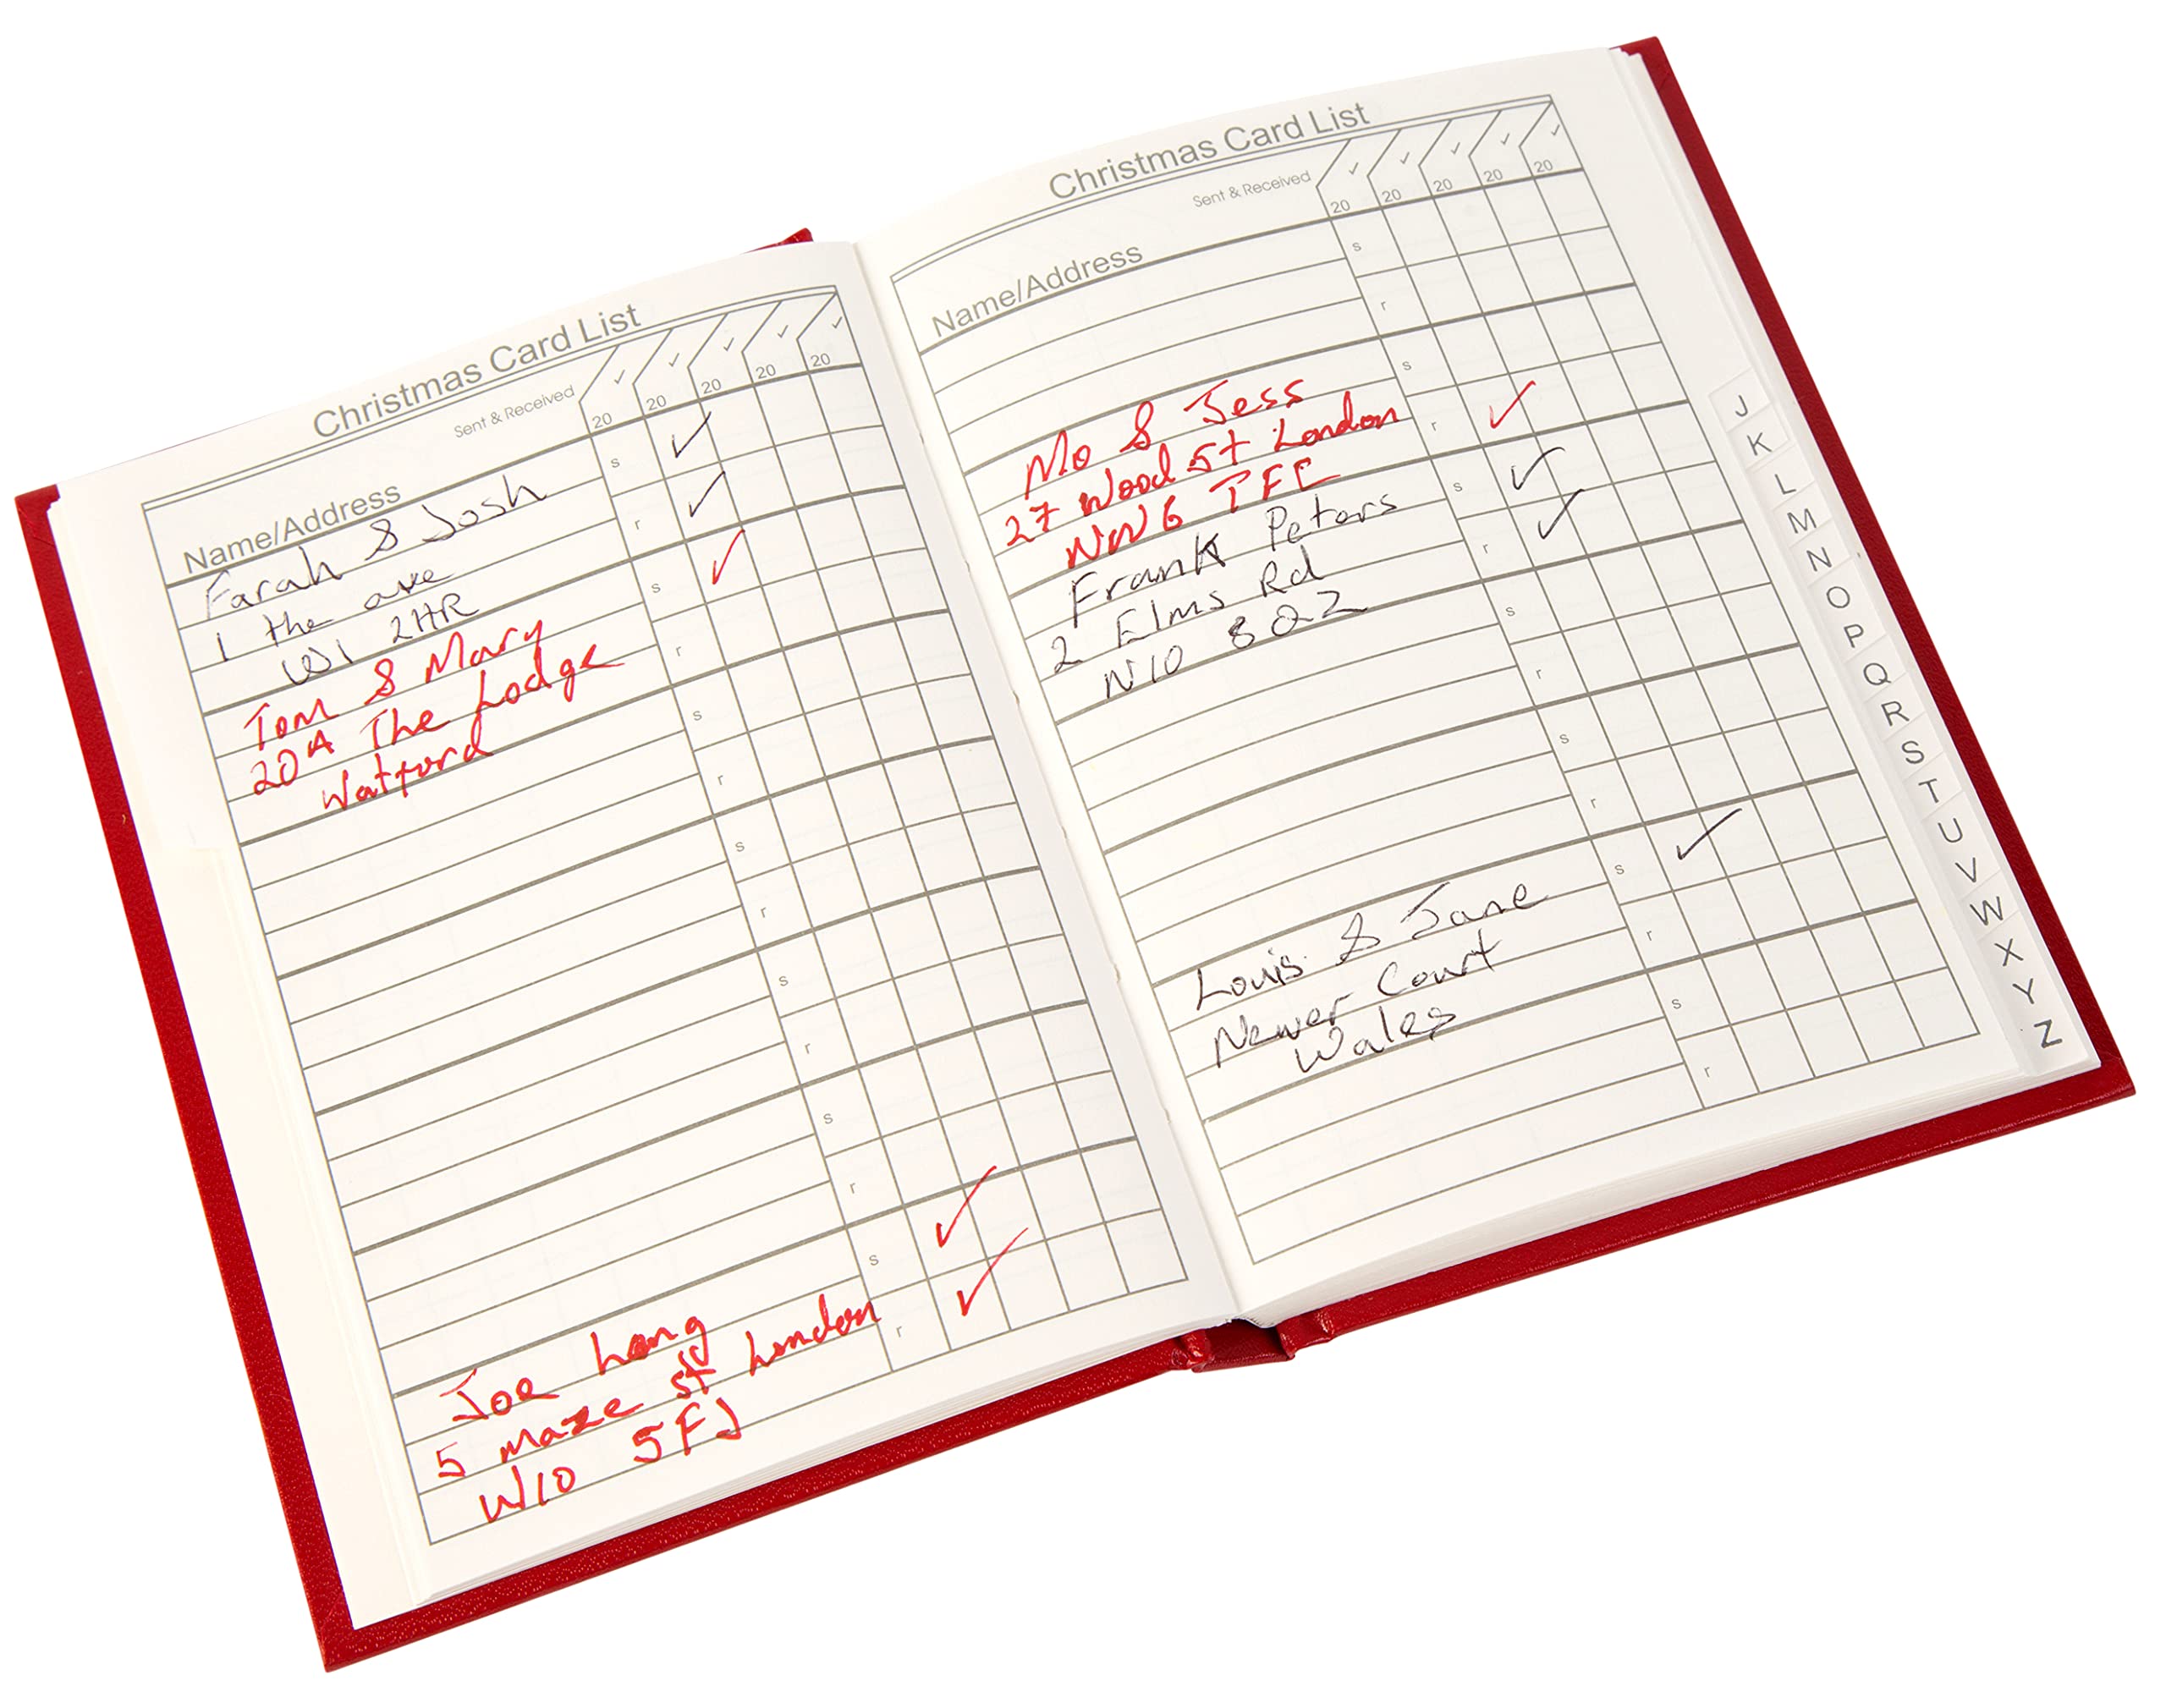 Christmas Card List
Sent & Received
20 20 20 20 20
Name/Address
Farah & Josh
1 the ave
W1 2HR
s
r
Tom & Mary
20A The Lodge
Watford
s
r
s
r
s
r
s
r
s
r
Joe Long
5 maze st London
W10 5FJ
s
r
Christmas Card List
Sent & Received
20 20 20 20 20
Name/Address
s
r
Mo & Jess
27 Wood St London
NW6
s
r
Frank Peters
2 Elms Rd
N10 8QZ
s
r
s
r
s
r
Louis & Jane
Newer Court
Wales
s
r
s
r
J
K
L
M
N
O
P
Q
R
S
T
U
V
W
X
Y
Z